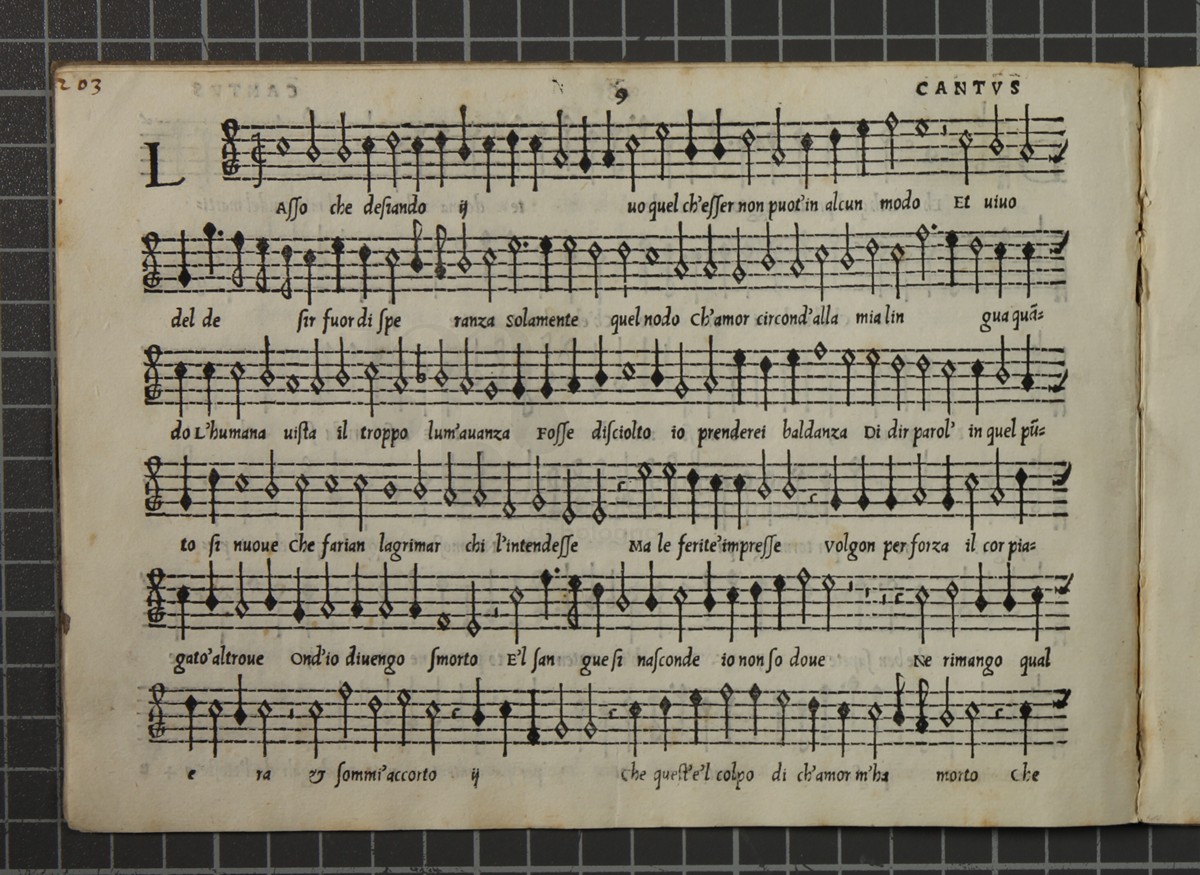 203 9 CANTVS
L
Asso che desiando ij uo quel ch'esser non puot'in alcun modo Et uiuo
del de sir fuor di spe ranza Solamente quel nodo Ch'amor circond'alla mia lin gua quã=
do L'humana uista il troppo lum'auanza Fosse disciolto io prenderei baldanza Di dir parol' in quel pũ=
to si nuoue Che farian lagrimar chi l'intendesse Ma le ferite'impresse volgon per forza il cor pia=
gato'altroue Ond'io diuengo smorto E'l san gue si nasconde io non so doue Ne rimango qual
e ra & sommi'accorto ij Che quest'e'l colpo di ch'amor m'ha morto Che